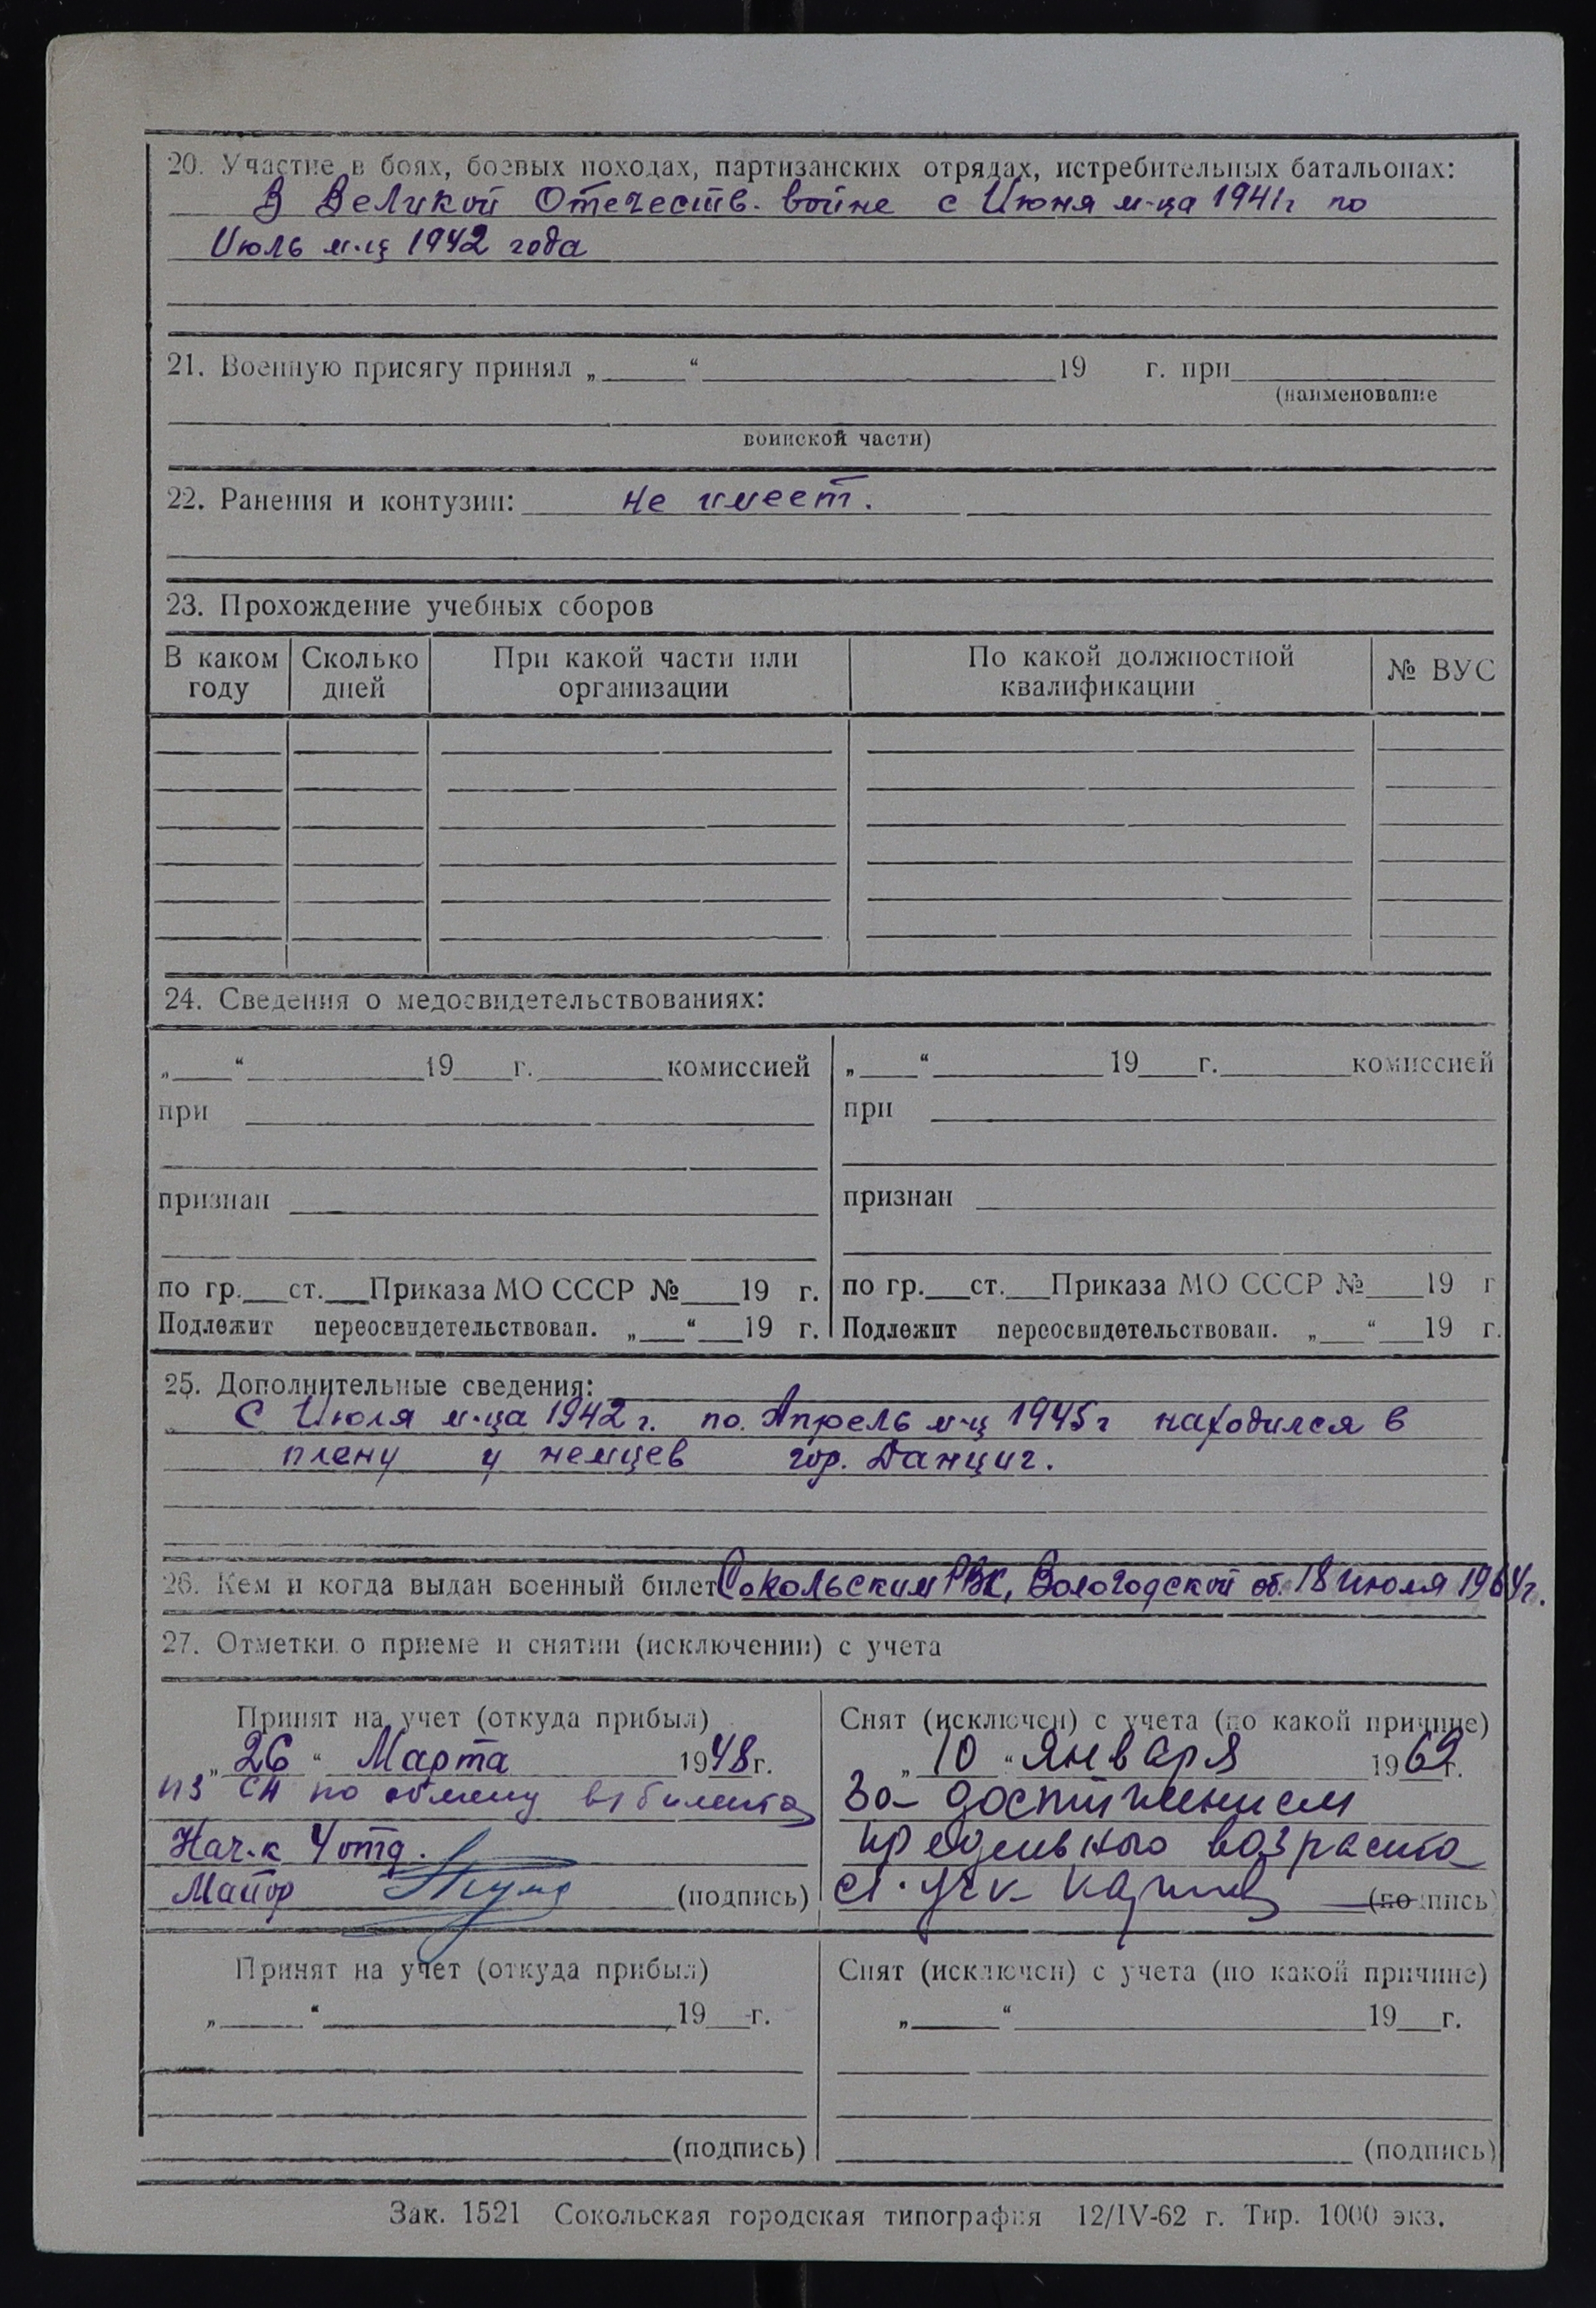 20. Участие в боях, боевых походах, партизанских отрядах, истребительных батальонах:
В Великой Отечеств. войне с Июня м-ца 1941г по
Июль м-ц 1942 года
21. Военную присягу принял „ “ 19 г. при
(наименование
воинской части)
22. Ранения и контузии: не имеет.
23. Прохождение учебных сборов
В каком году Сколько дней При какой части или организации По какой должностной квалификации № ВУС
24. Сведения о медосвидетельствованиях:
„ “ 19 г. комиссией
при
признан
по гр. ст. Приказа МО СССР № 19 г.
Подлежит переосвидетельствован. „ “ 19 г.
„ “ 19 г. комиссией
при
признан
по гр. ст. Приказа МО СССР № 19 г
Подлежит переосвидетельствован. „ “ 19 г.
25. Дополнительные сведения:
С Июля м-ца 1942 г. по. Апрель м-ц 1945 г находился в
плену у немцев гор. Данциг.
26. Кем и когда выдан военный билет Сокольским РВК, Вологодской об. 18 июля 1964г.
27. Отметки о приеме и снятии (исключении) с учета
Принят на учет (откуда прибыл)
„ 26 “ Марта 1948г.
из СА по обмену в/билета
Нач-к 4 отд.
Майор (подпись)
Снят (исключен) с учета (по какой причине)
„ 10 “ Января 1969г.
За- достижением
предельного возраста
(подпись)
Принят на учет (откуда прибыл)
„ “ 19 г.
(подпись)
Снят (исключен) с учета (по какой причине)
„ “ 19 г.
(подпись)
Зак. 1521 Сокольская городская типография 12/IV-62 г. Тир. 1000 экз.